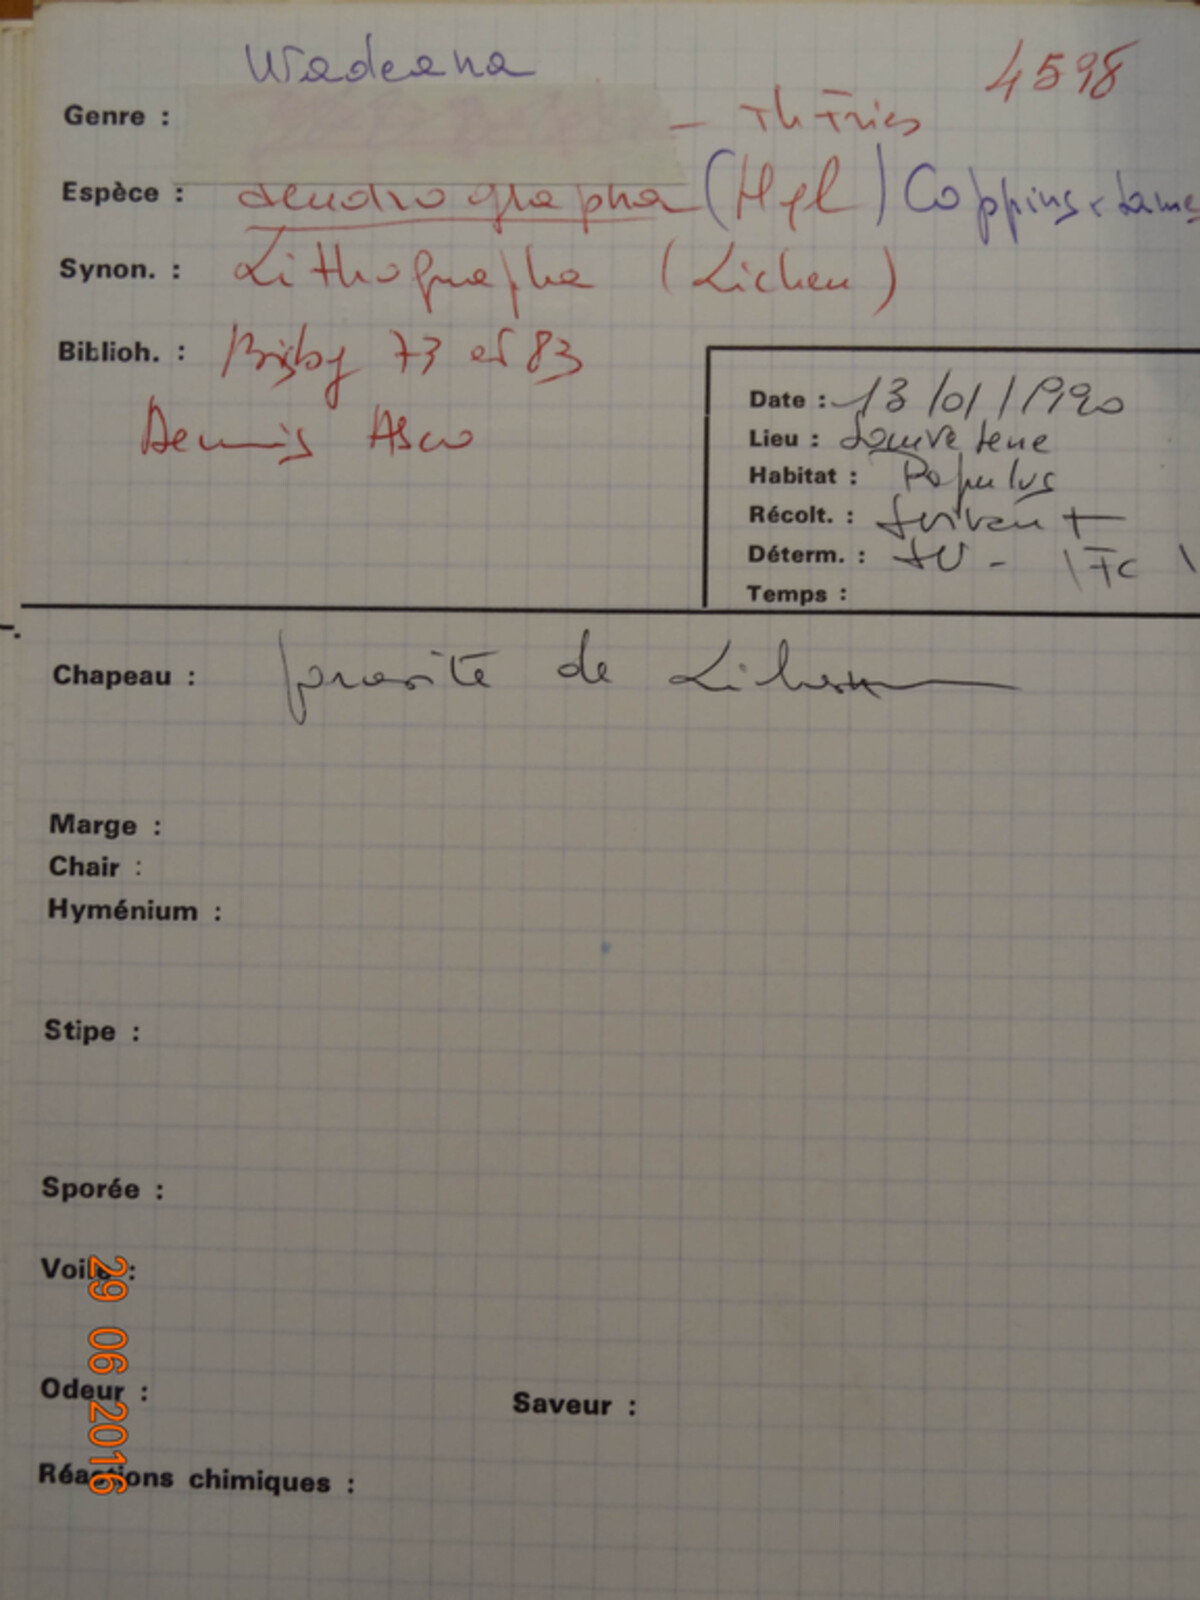 Wadeana
4598
Genre : — Th Fries
Espèce : dendrographa (Nyl) Coppins &
Synon. : Lithographa (Lichen)
Biblioh. : Bisby 73 et 83
Dennis Asco
Date : 13/01/1990
Lieu :
Habitat : Populus
Récolt. :
Déterm. :
Temps :
Chapeau : parasite de
Marge :
Chair :
Hyménium :
Stipe :
Sporée :
Voile :
Odeur :
Saveur :
Réactions chimiques :
29 06 2016